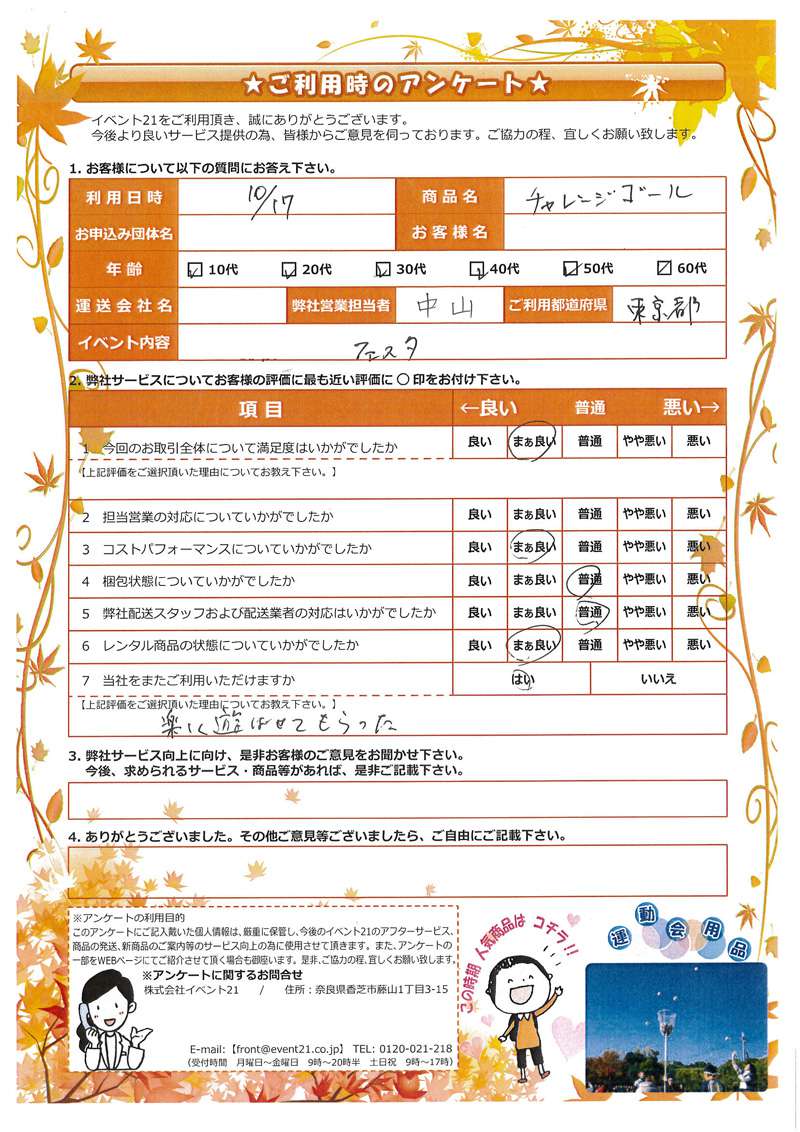 ★ご利用時のアンケート★
イベント21をご利用頂き、誠にありがとうございます。
今後より良いサービス提供の為、皆様からご意見を伺っております。ご協力の程、宜しくお願い致します。
1. お客様について以下の質問にお答え下さい。
利用日時 10/17 商品名 チャレンジゴール
お申込み団体名 お客様名
年齢 10代 20代 30代 40代 50代 60代
運送会社名 弊社営業担当者 中山 ご利用都道府県 東京都
イベント内容 フェスタ
2. 弊社サービスについてお客様の評価に最も近い評価に 〇 印をお付け下さい。
項目 ←良い 普通 悪い→
1 今回のお取引全体について満足度はいかがでしたか 良い まぁ良い 普通 やや悪い 悪い
【上記評価をご選択頂いた理由についてお教え下さい。】
2 担当営業の対応についていかがでしたか 良い まぁ良い 普通 やや悪い 悪い
3 コストパフォーマンスについていかがでしたか 良い まぁ良い 普通 やや悪い 悪い
4 梱包状態についていかがでしたか 良い まぁ良い 普通 やや悪い 悪い
5 弊社配送スタッフおよび配送業者の対応はいかがでしたか 良い まぁ良い 普通 やや悪い 悪い
6 レンタル商品の状態についていかがでしたか 良い まぁ良い 普通 やや悪い 悪い
7 当社をまたご利用いただけますか はい いいえ
【上記評価をご選択頂いた理由についてお教え下さい。】
楽しく遊ばせてもらった
3. 弊社サービス向上に向け、是非お客様のご意見をお聞かせ下さい。
今後、求められるサービス・商品等があれば、是非ご記載下さい。
4. ありがとうございました。その他ご意見等ございましたら、ご自由にご記載下さい。
※アンケートの利用目的
このアンケートにご記入戴いた個人情報は、厳重に保管し、今後のイベント21のアフターサービス、
商品の発送、新商品のご案内等のサービス向上の為に使用させて頂きます。また、アンケートの
一部をWEBページにてご紹介させて頂く場合も御座います。是非、ご協力の程、宜しくお願い致します。
※アンケートに関するお問合せ
株式会社イベント21 / 住所：奈良県香芝市藤山1丁目3-15
E-mail:【front@event21.co.jp】 TEL: 0120-021-218
(受付時間 月曜日～金曜日 9時～20時半 土日祝 9時～17時)
この時期 人気商品は コチラ!!
運動会用品